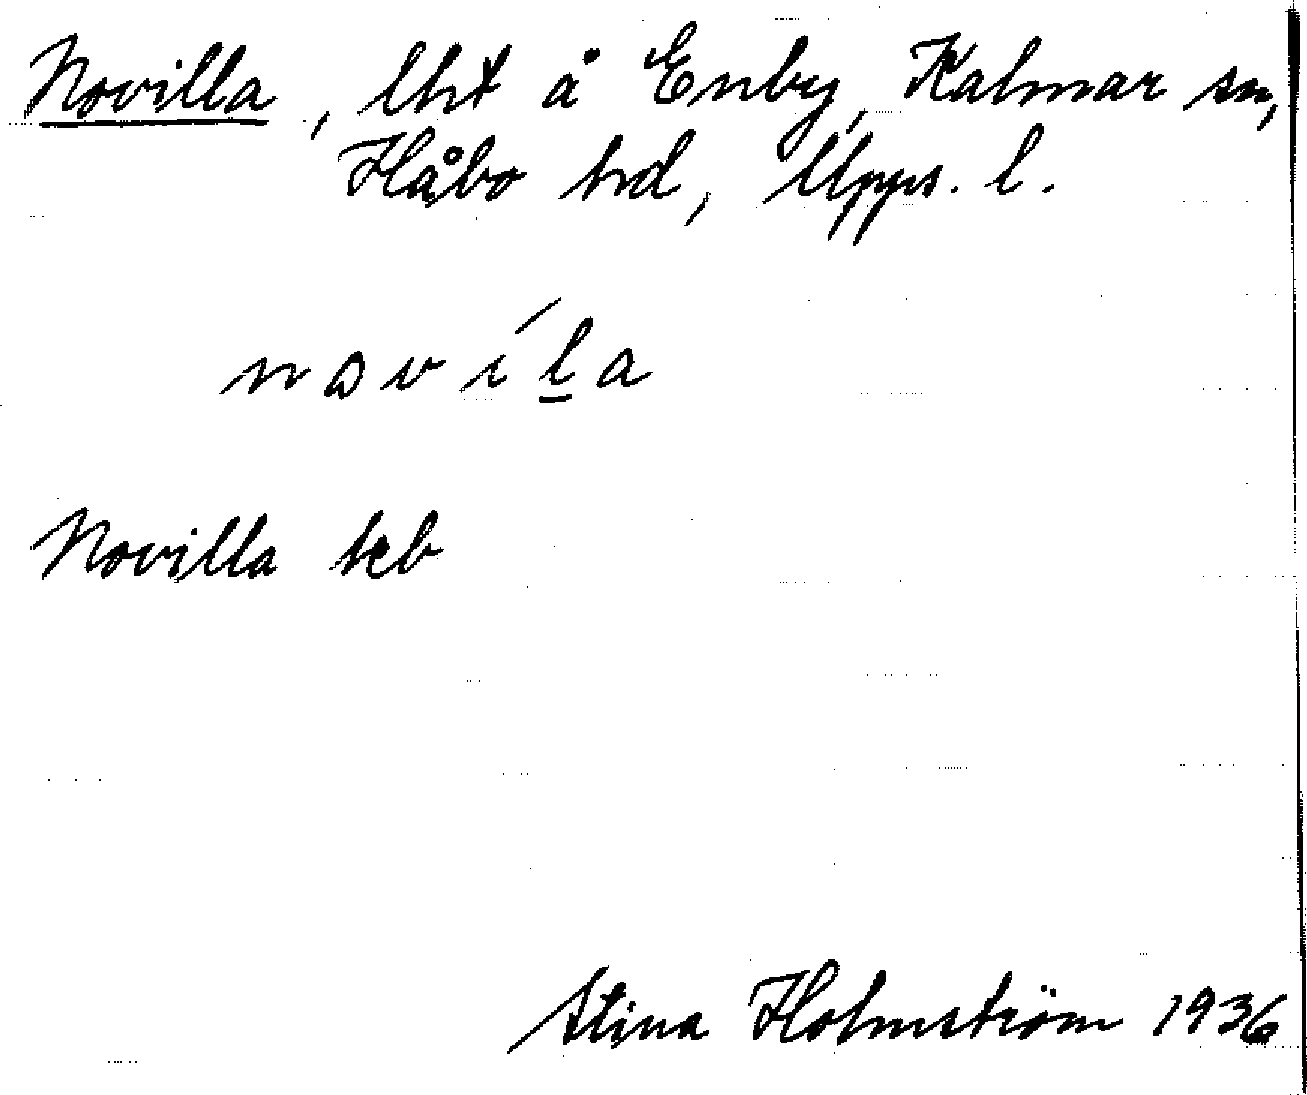 Novilla, lht å Enby, Kalmar sn,
Håbo hrd, Upps. l.
novíla
Novilla kb
Stina Holmström 1936